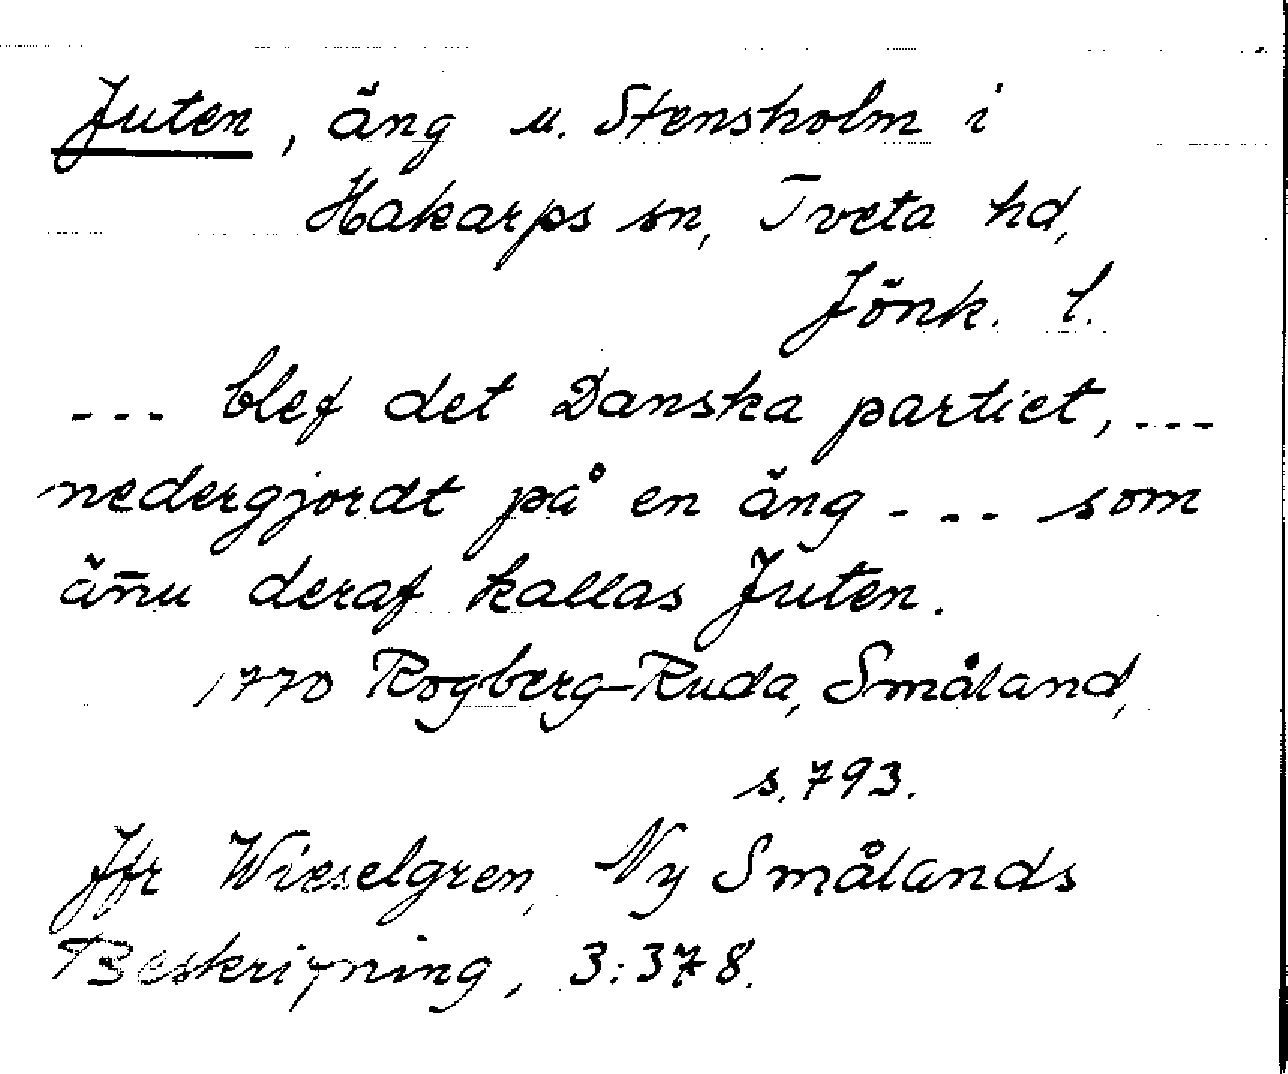 Juten, äng u. Stensholm i
Hakarps sn, Tveta hd,
Jönk. l.
--- blef det Danska partiet, ---
nedergjordt på en äng --- som
än̄u deraf kallas Juten.
1770 Rogberg-Ruda, Småland,
s. 793.
Jfr Wieselgren, Ny Smålands
Beskrifning, 3:378.